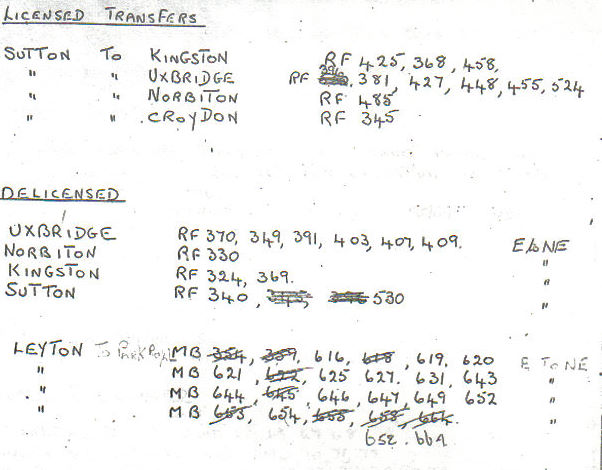 LICENSED TRANSFERS
SUTTON TO KINGSTON RF 425, 368, 458,
" " UXBRIDGE RF 396, 381, 427, 448, 455, 524
" " NORBITON RF 485
" " CROYDON RF 345
DELICENSED
UXBRIDGE RF 370, 349, 391, 403, 407, 409. E to NE
NORBITON RF 330 "
KINGSTON RF 324, 369. "
SUTTON RF 340, 530 "
LEYTON To Park Royal MB 354, 359, 616, 618, 619, 620 E TO NE
" MB 621, 622, 625 627. 631, 643 "
" MB 644, 645, 646, 647, 649 652 "
" MB 653, 654, 655, 658, 664. "
652. 664